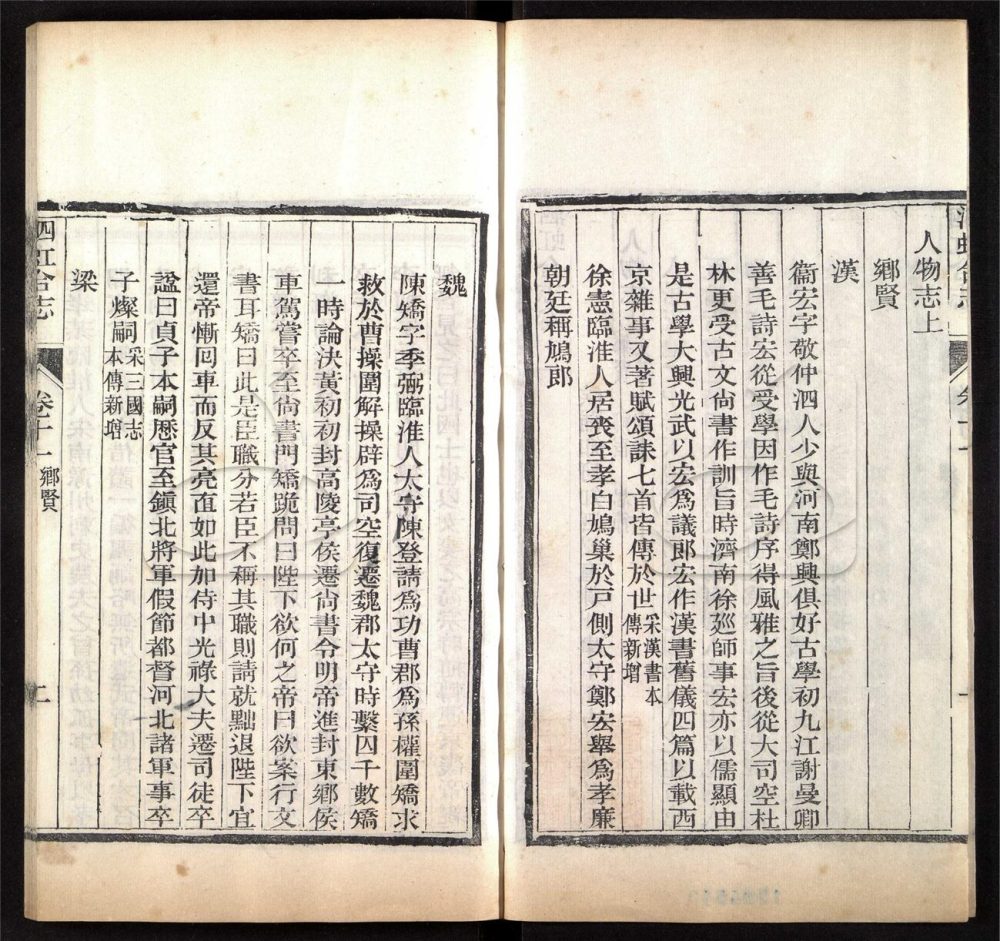 人物志上
鄉賢
漢
衞宏字敬仲泗人少與河南鄭興俱好古學初九江謝曼卿
善毛詩宏從受學因作毛詩序得風雅之旨後從大司空杜
林更受古文尙書作訓旨時濟南徐廵師事宏亦以儒顯由
是古學大興光武以宏爲議郎宏作漢書舊儀四篇以載西
京雜事又著賦頌誄七首皆傳於世采漢書本
傳新增
徐憲臨淮人居喪至孝白鳩巢於戸側太守鄭宏舉爲孝廉
朝廷稱鳩郎
魏
陳矯字季弼臨淮人太守陳登請爲功曹郡爲孫權圍矯求
救於曹操圍解操辟爲司空復遷魏郡太守時繫囚千數矯
一時論決黃初初封高陵亭侯遷尙書令明帝進封東鄉侯
車駕嘗卒至尙書門矯跪問曰陛下欲何之帝曰欲案行文
書耳矯曰此是臣職分若臣不稱其職則請就黜退陛下宜
還帝慚囘車而反其亮直如此加侍中光祿大夫遷司徒卒
諡曰貞子本嗣歴官至鎭北將軍假節都督河北諸軍事卒
子燦嗣采三國志
本傳新增
梁
泗虹合志
卷十一
鄉賢
二